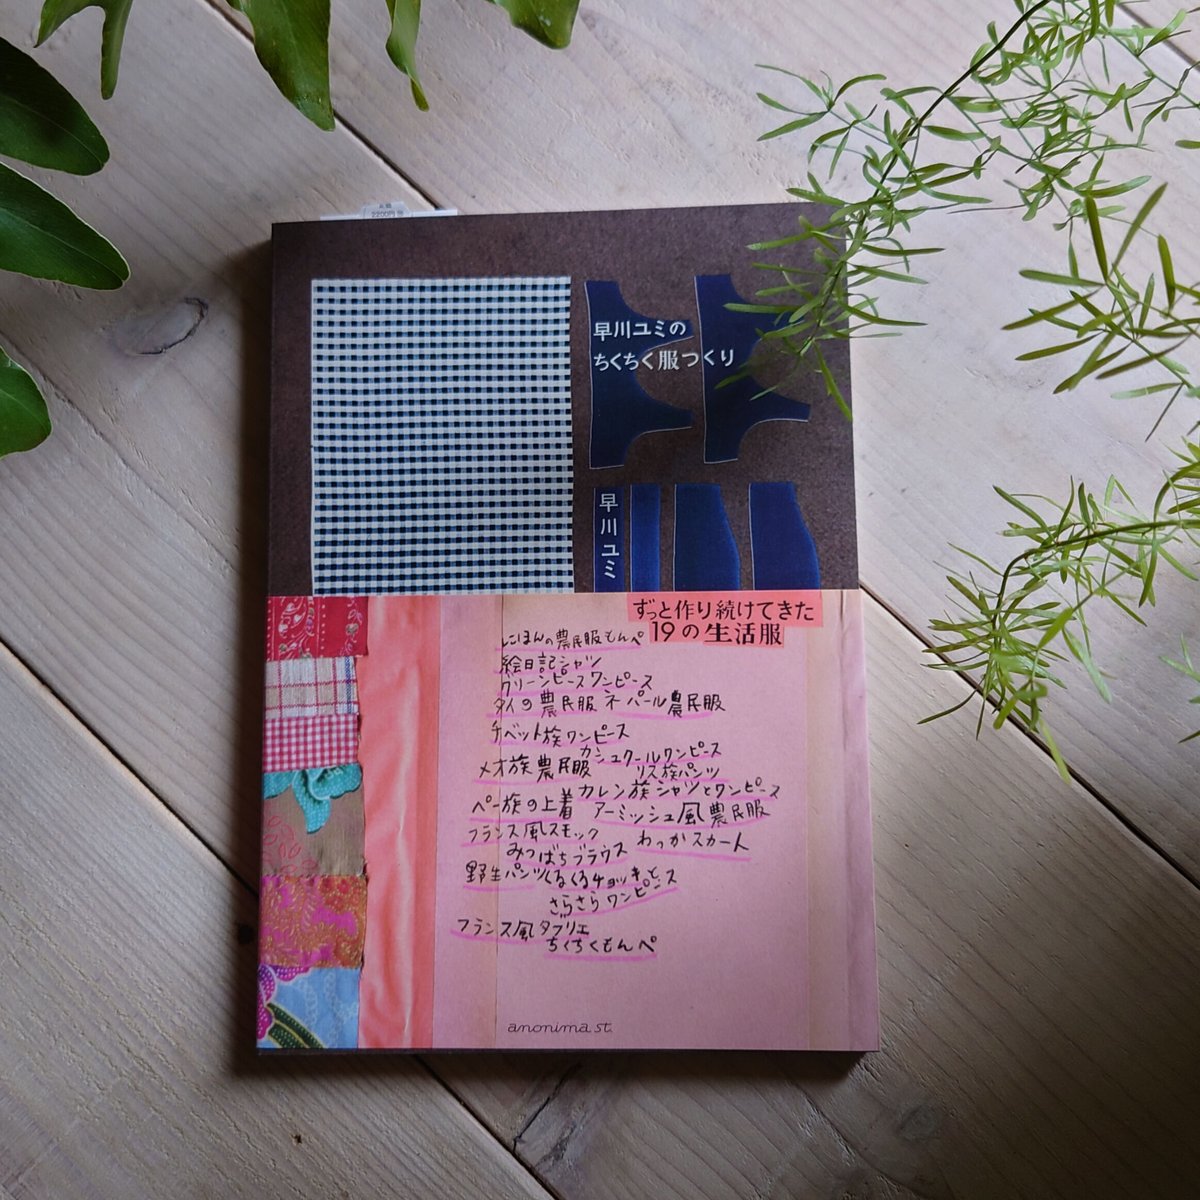 2200円
早川ユミの
ちくちく服つくり
早川ユミ
ずっと作り続けてきた
19の生活服
にほんの農民服もんぺ
絵日記シャツ
グリーンピースワンピース
タイの農民服 ネパール農民服
チベット族ワンピース
カシュクールワンピース
メオ族農民服 リス族パンツ
カレン族シャツとワンピース
ペー族の上着 アーミッシュ風農民服
フランス風スモック わっかスカート
みつばちブラウス
野生パンツ くるくるチョッキと
さらさらワンピース
フランス風タブリエ
ちくちくもんぺ
anonima st.